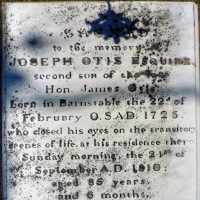 to the memory
JOSEPH OTIS ESQUIRE
second son of the
Hon. James Otis
born in Barnstable the 22d of
February O.S.A.D. 1725.
who closed his eyes on the transitory
scenes of life, at his residence there
Sunday morning, the 21st of
September A.D. 1810:
aged 85 years,
and 6 months,